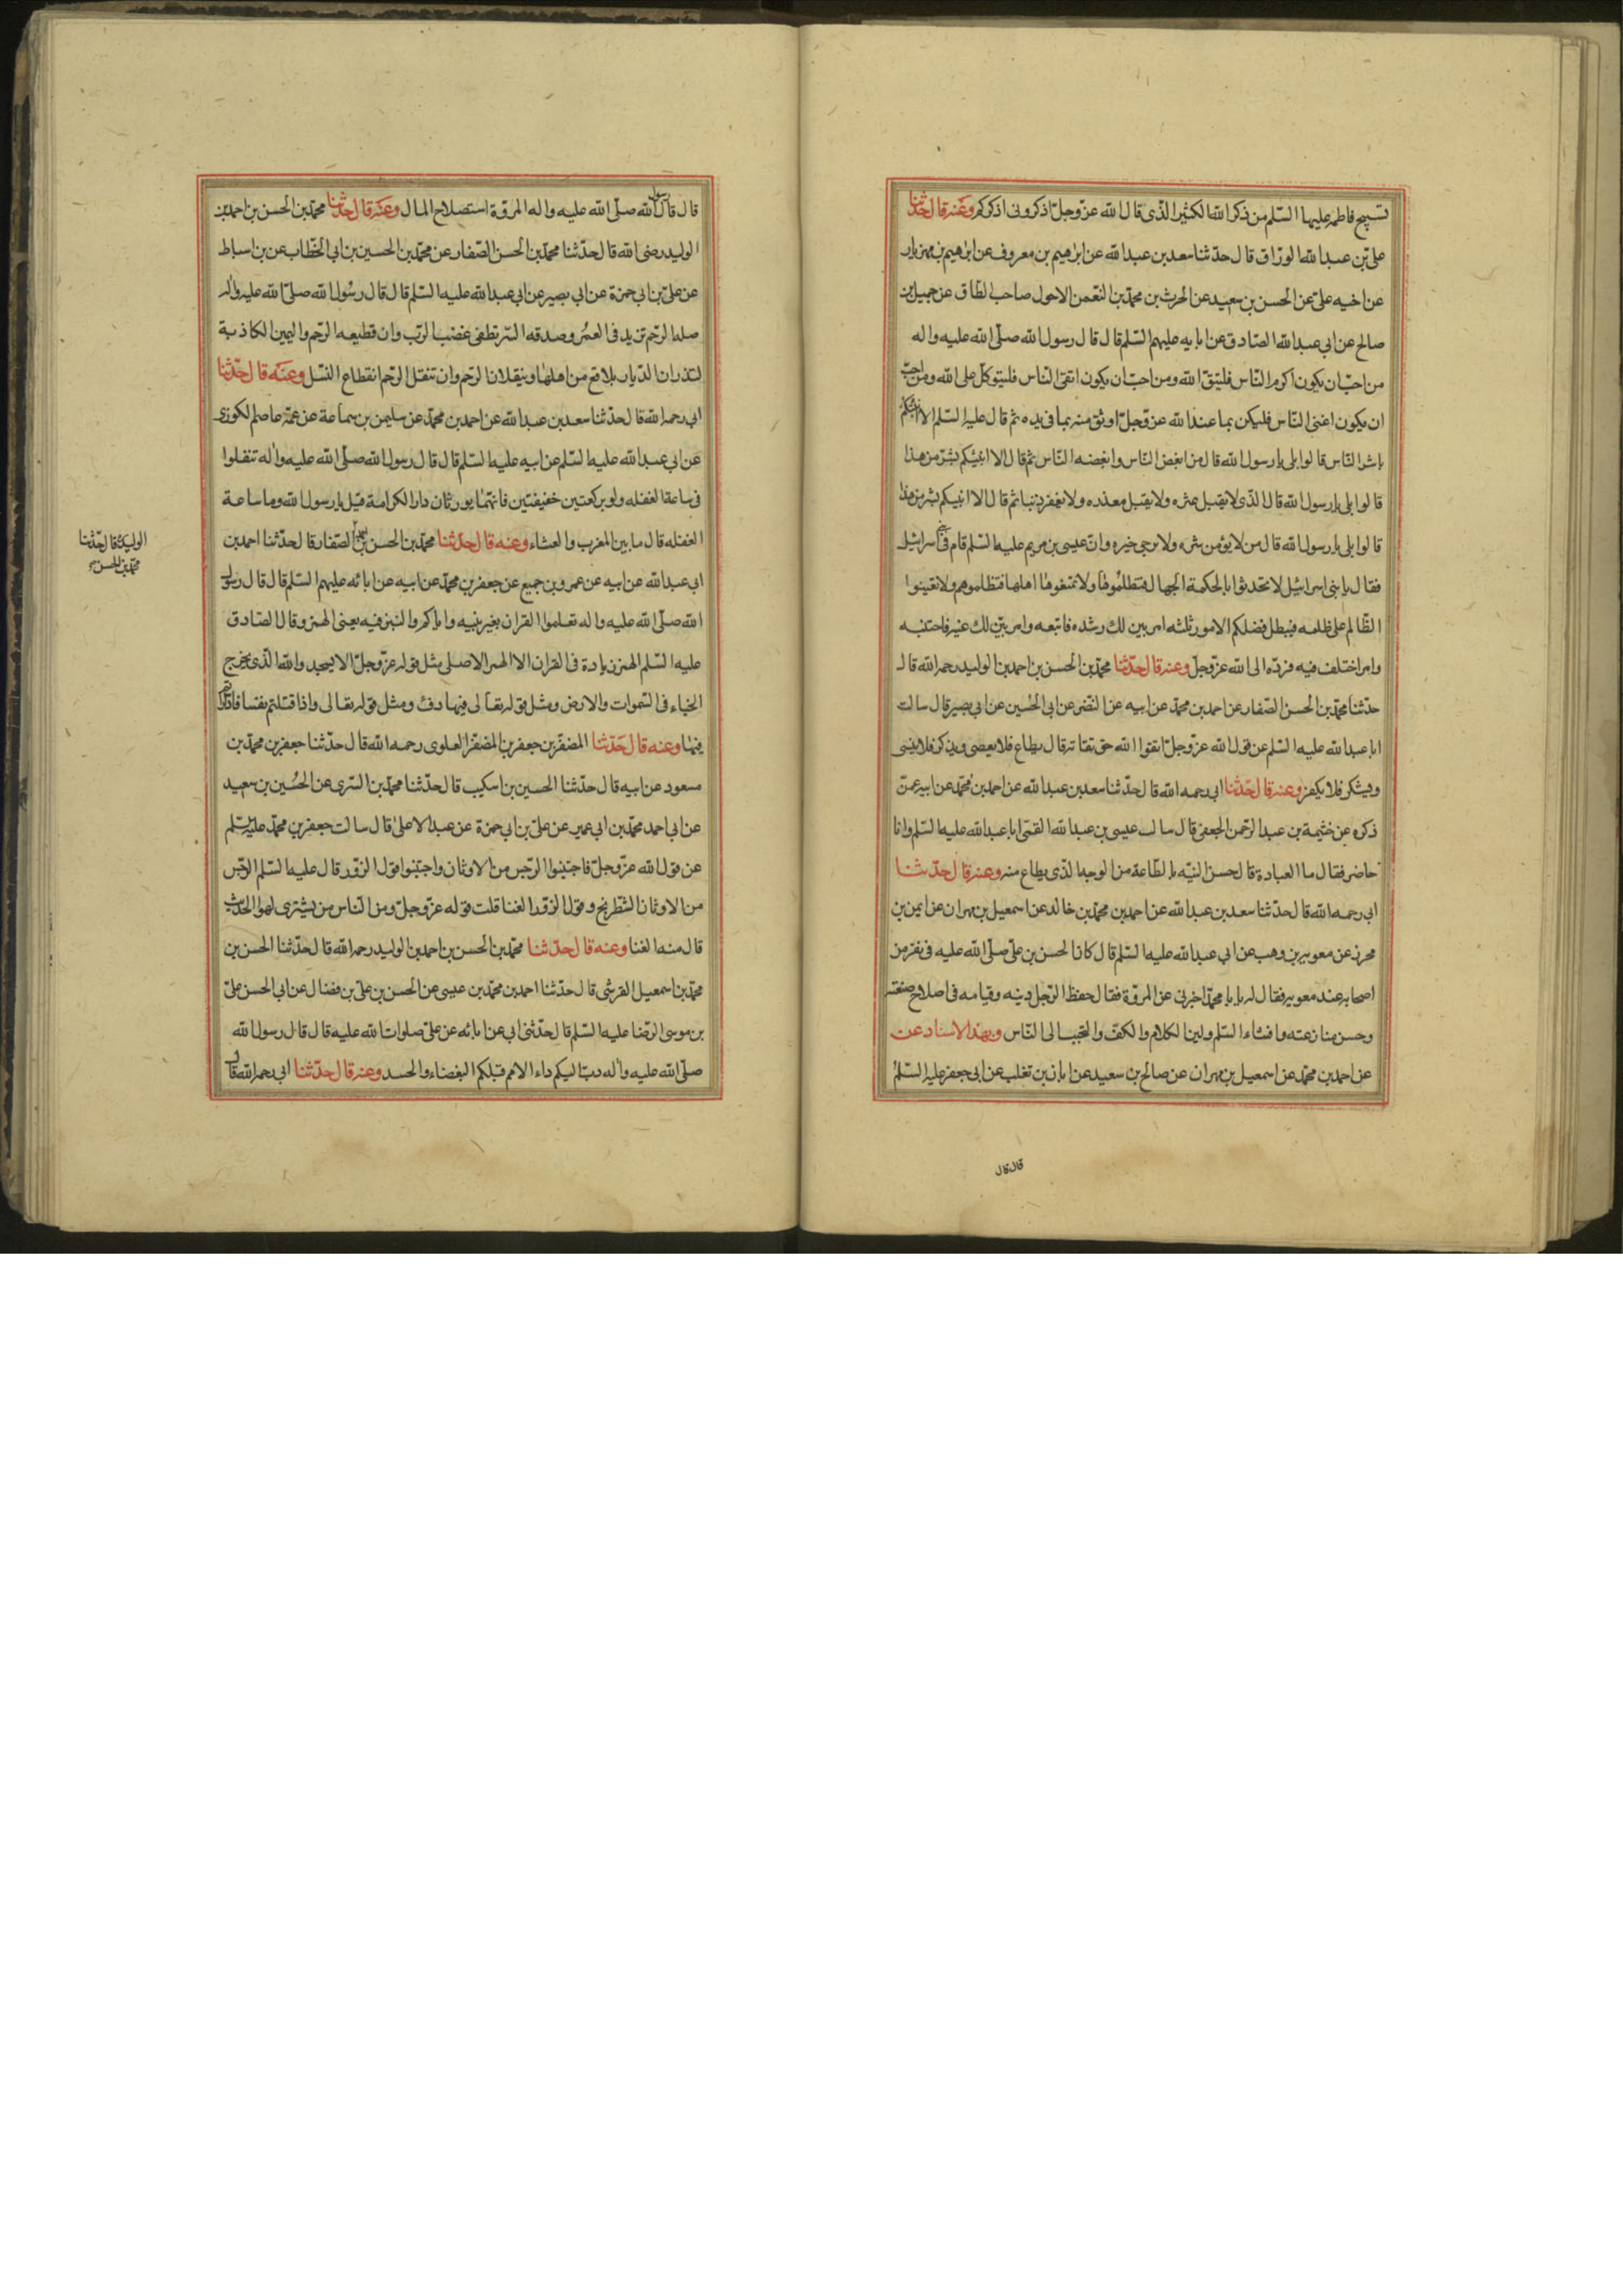 تسبيح فاطمه عليها السّلم من ذكر الله الكثير الّذى قال الله عزّ وجلّ اذكرونى اذكركم وعنه قال حدّثنا
علىّ بن عبد الله الورّاق قال حدّثنا سعد بن عبد الله عن ابرٰهيم بن معروف عن ابرٰهيم بن مهزيار
عن اخيه علىّ عن الحسن بن سعيد عن الحرث بن محمّد بن النّعمن الاحول صاحب الطّاق عن جميل بن
صالح عن ابى عبد الله الصّادق عن ابايه عليهم السّلم قال قال رسول الله صلّى الله عليه واله
من احبّ ان يكون اكرم النّاس فليتّق الله ومن احبّ ان يكون اتقى النّاس فليتوكّل على الله ومن احبّ
ان يكون اغنى النّاس فليكن بما عند الله عزّ وجلّ اوثق منه بما فى يده ثم قال عليه السّلم الا انبئكم
باشر النّاس قالوا بلى يا رسول الله قال من ابغض النّاس وابغضه النّاس ثم قال الا انبئكم بشرّ من هذا
قالوا بلى يا رسول الله قال الّذى لا يقيل عثره ولا يقبل معذره ولا يغفر ذنبا ثم قال الا انبيكم بشر من هذا
قالوا بلى يا رسول الله قال من لا يؤمن شره ولا يرجى خيره وانّ عيسى بن مريم عليه السّلم قام فى بنى اسرائيل
فقال يا بنى اسرائيل لا تحدثوا بالحكمة الجهال فتظلموها ولا تمنعوها اهلها فتظلموهم ولا تعينوا
الظّالم على ظلمه فيبطل فضلكم الامور ثلثه امر بين لك رشده فاتبعه وامر بيّن لك غيه فاجتنبه
وامر اختلف فيه فردّه الى الله عزّ وجلّ وعنه قال حدّثنا محمّد بن الحسن بن احمد بن الوليد رحمه الله قال
حدّثنا محمّد بن الحسن الصّفار عن احمد بن محمّد عن ابيه عن النّضر عن ابى الحُسين عن ابى بصير قال سالت
ابا عبد الله عليه السّلم عن قول الله عزّ وجلّ اتقوا الله حق تقاته قال يطاع فلا يعصى ويذكر فلا ينسى
ويشكر فلا يكفر وعنه قال حدّثنا ابى رحمه الله قال حدّثنا سعد بن عبد الله عن احمد بن محمّد عن ابيه عمّن
ذكره عن خثيمة بن عبد الرّحمن الجعفى قال سال عيسى بن عبد الله القمّى ابا عبد الله عليه السّلم وانا
حاضر فقال ما العبادة قال حسن النيّه بالطّاعة من الوجه الذّى يطاع منه وعنه قال حدّثنا
ابى رحمه الله قال حدّثنا سعد بن عبد الله عن احمد بن محمّد بن خالد عن اسمعيل بن مهران عن ايمن بن
محرز عن معويه بن وهب عن ابى عبد الله عليه السّلم قال كان الحسن بن علىّ صلّى الله عليه فى نفر من
اصحابه عند معويه فقال له يابا محمّد اخبرنى عن المروّة فقال حفظ الرّجل دينه وقيامه فى اصلاح صنعته
وحسن منازعته وافشاء السّلم ولين الكلام والكفّ والتحبب الى النّاس وبهذا الاسناد عن
عن احمد بن محمّد عن اسمعيل بن مهران عن صالح بن سعيد عن ابان بن تغلب عن ابى جعفر عليه السّلم
قال قال
قال قال رسول الله صلّى الله عليه واله المروّة استصلاح المال وعنه قال حدّثنا محمّد بن الحسن بن احمد بن
الوليد رضى الله قال حدّثنا محمّد بن الحسن الصّفار عن محمّد بن الحسين بن ابى الخطّاب عن بن اسباط
عن علىّ بن ابى حمزة عن ابى بصير عن ابى عبد الله عليه السّلم قال قال رسُول الله صلّى الله عليه واله
صله الرّحم تزيد فى العمُر وصدقه السّر تطفى غضب الرّب وان قطيعه الرّحم واليمين الكاذبة
لتذران الدّيار بلاقع من اهلها ويثقلان الرّحم وان تثقل الرّحم انقطاع النّسل وعنه قال حدّثنا
ابى رحمه الله قال حدّثنا سعد بن عبد الله عن احمد بن محمّد عن سليمن بن سماعة عن عمّه عاصم الكوزى
عن ابى عبد الله عليه السّلم عن ابيه عليه السّلم قال قال رسول الله صلّى الله عليه واله تنفلوا
فى ساعة الغفله ولو بركعتين خفيفتين فانّهما يورثان دار الكرامة قيل يا رسول الله وما ساعة
الغفله قال ما بين المغرب والعشاء وعنه قال حدّثنا محمّد بن الحسن بن احمد بن الصّفار قال حدّثنا احمد بن
الوليد قال حدّثنا
محمّد بن الحسن
ابى عبد الله عن ابيه عن عمرو بن جميع عن جعفر بن محمّد عن ابيه عن ابائه عليهم السّلم قال قال رسول
الله صلّى الله عليه واله تعلموا القران بعربيته واياكم والنبز فيه يعنى الهمز وقال الصّادق
عليه السّلم الهمز زيادة فى القران الا الهمز الاصلى مثل قوله عزّ وجلّ الا يسجدوا لله الّذى يخرج
الخباء فى السّموات والارض ومثل قوله تعالى فيها دفء ومثل قوله تعالى واذا قتلتم نفسا فادّاراتم
فيها وعنه قال حَدّثنا المضفّر بن جعفر بن المضفّر العلوى رحمه الله قال حدّثنا جعفر بن محمّد بن
مسعود عن ابيه قال حدّثنا الحسين بن اسكيب قال حدّثنا محمّد بن السّرى عن الحُسين بن سعيد
عن ابى احمد محمّد بن ابى عمير عن علىّ بن ابى حمزة عن عبد الاعلىٰ قال سالت جعفر بن محمّد عليه السّلم
عن قول الله عزّ وجلّ فاجتنبوا الرّجس من الاوثان واجتنبوا قول الزّور قال عليه السّلم الرّجس
من الاوثان الشّطرنج وقول الزّور الغنا قلت قوله عزّ وجلّ ومن النّاس من يشترى لهو الحديث
قال منه الغنا وعنه قال حدّثنا محمّد بن الحسن بن احمد بن الوليد رحمه الله قال حدّثنا الحسن بن
محمّد بن اسمعيل القرشى قال حدّثنا احمد بن محمّد بن عيسى عن الحسن بن علىّ بن فضال عن ابى الحسن علىّ
بن موسى الرّضا عليه السّلم قال حدّثنى ابى عن ابائه عن علىّ صلوات الله عليه قال قال رسول الله
صلّى الله عليه واله دبّ اليكم داء الامم قبلكم البغضاء والحسد وعنه قال حدّثنا ابى رحمه الله قال